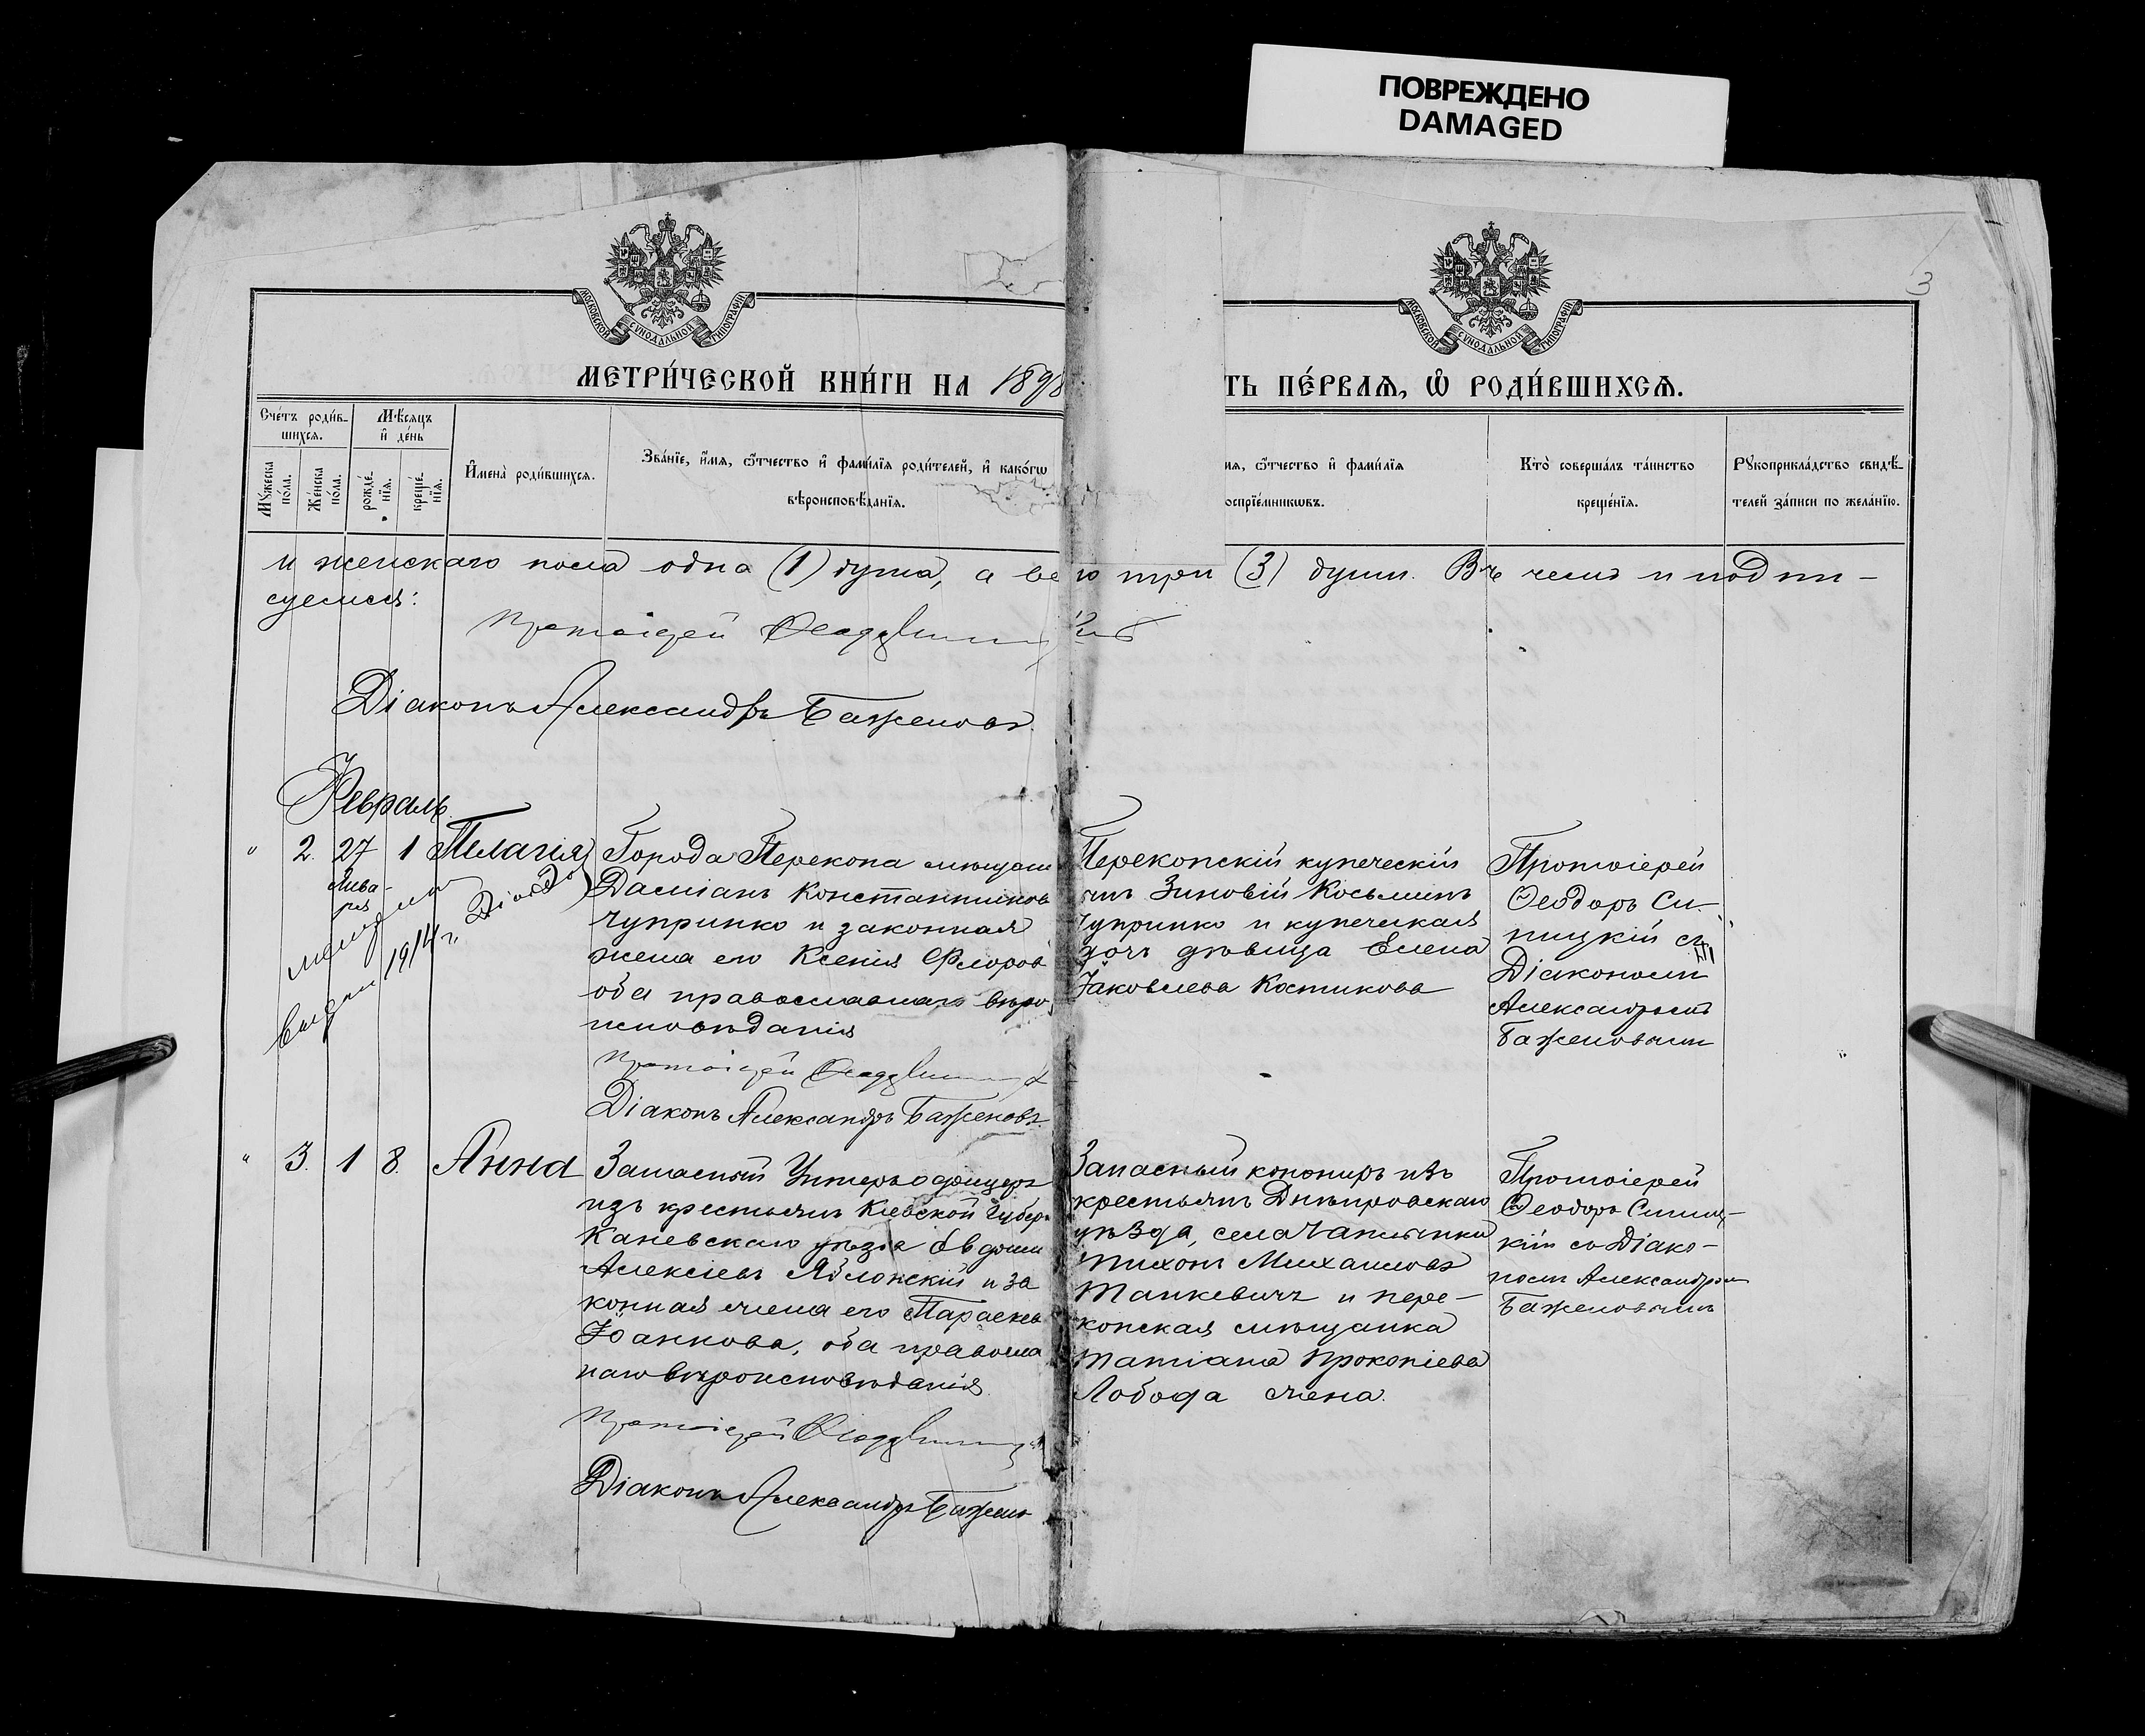 ПОВРЕЖДЕНО
DAMAGED
3
МОСКОВСКОЙ СѴНОДАЛЬНОЙ ТИПОГРАФІИ
МОСКОВСКОЙ СѴНОДАЛЬНОЙ ТИПОГРАФІИ
МЕТРИ́ЧЕСКОЙ КНИ́ГИ НА 1898
ТЬ ПЕ́РВАѦ, Ѽ РОДИ́ВШИХСѦ.
Сче́тъ роди́в-
шихсѧ.
Мѣсѧцъ
и҆ де́нь
Мꙋжеска
по́ла.
Же́нска
по́ла.
рожде́-
нїѧ.
креще́-
нїѧ.
И҆мена̀ роди́вшихсѧ.
Зва́нїе, и҆́мѧ, ѻ҆́тчество и҆ фами́лїѧ роди́телей, и҆ како́гѡ
вѣроисповѣ́данїѧ.
мѧ, ѻ҆́тчество и҆ фами́лїѧ
оспрїе́мникѡвъ.
Кто̀ соверша́лъ та́инство
креще́нїѧ.
Рꙋкоприкла́дство свидѣ́-
телей за́писи по жела́нїю.
и женскаго пола одна (1) душа, а все
го три (3) души. Въ чемъ и подпи-
суемся:
Протоіерей
Діаконъ Александръ Баженовъ.
Февраль.
" 2. 27 1 Пелагія
Янва-
ря
выдан 1914 г.
Города Перекопа мѣщани
Даміанъ Константинов
Чупринко и законная
жена его Ксенія Флоров
оба православнаго вѣро
исповѣданія
Протоіерей
Діаконъ Александръ Баженовъ.
Перекопскій купеческій
сынъ Зиновій Косьминъ
Чупринко и купеческая
дочь дѣвица Елена
Іаковлева Костикова
Протоіерей
Ѳеодоръ Си-
ницкій съ
Діакономъ
Александромъ
Баженовымъ
" 3. 1 8. Анна
Запасный Унтеръ офицеръ
изъ крестьянъ Кіевской Губер
Каневскаго уѣзда Евдоким
Алексіевъ Яблонскій и за
конная жена его Параскев
Іоаннова, оба правосла
наго вѣроисповѣданія.
Протоіерей
Діаконъ Александръ Бажен
Запасный канониръ изъ
крестьянъ Днѣпровскаго
уѣзда, села Чаплинки
Тихонъ Михаиловъ
Танкевичъ и пере-
копская мѣщанка
Татіана Прокопіева
Лобода жена.
Протоіерей
Ѳеодоръ Синиц-
кій съ Діако-
номъ Александром
Баженовымъ